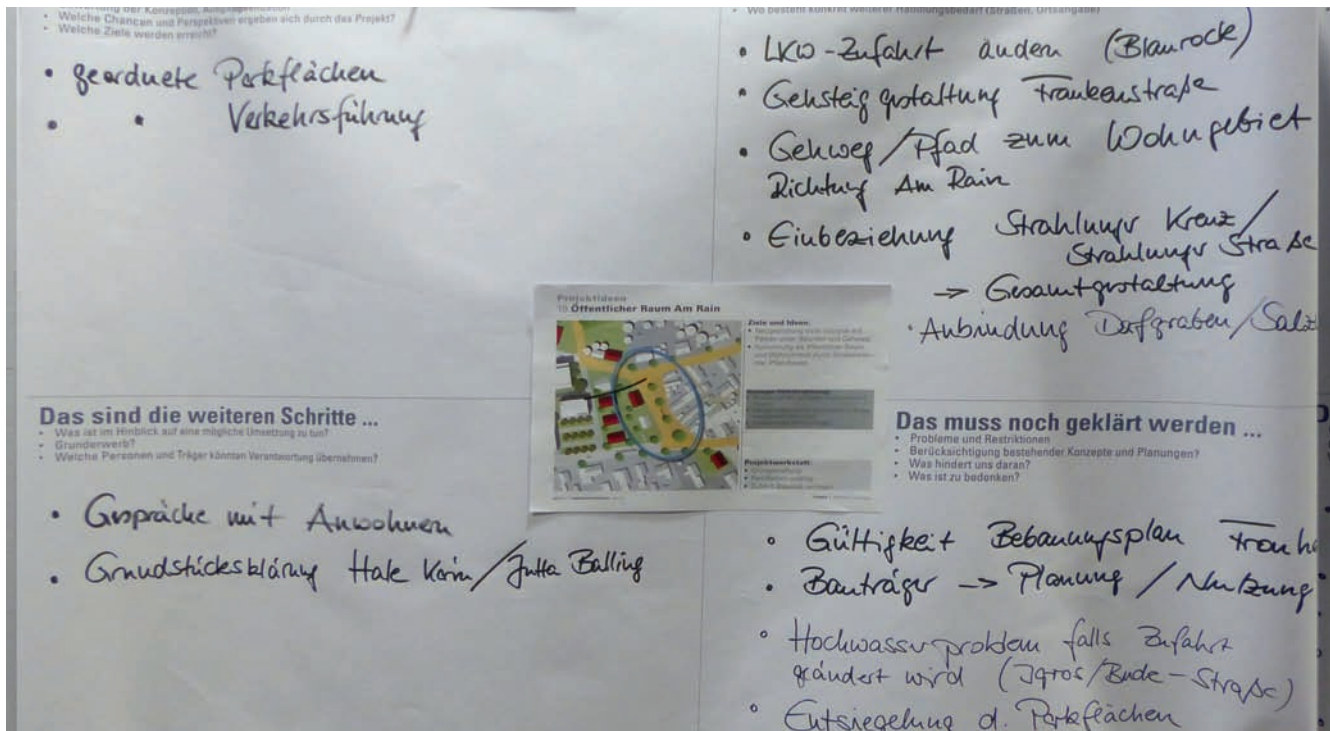 Welche Chancen und Perspektiven ergeben sich durch das Projekt?
Welche Ziele werden erreicht?
• geordnete Parkflächen
• " Verkehrsführung
• LKW-Zufahrt ändern (Blaurock)
• Gehsteiggestaltung Frankenstraße
• Gehweg/Pfad zum Wohngebiet
Richtung Am Rain
• Einbeziehung Strahlunger Kreuz/
Strahlunger Straße
→ Gesamtgestaltung
• Anbindung Dorfgraben/Salz
Projektideen
Öffentlicher Raum Am Rain
Ziele und Ideen:
Projektwerkstatt
Das sind die weiteren Schritte ...
• Was ist im Hinblick auf eine mögliche Umsetzung zu tun?
• Grunderwerb?
• Welche Personen und Träger könnten Verantwortung übernehmen?
• Gespräche mit Anwohnern
• Grundstücksklärung Karin/Jutta Balling
Das muss noch geklärt werden ...
• Probleme und Restriktionen
• Berücksichtigung bestehender Konzepte und Planungen?
• Was hindert uns daran?
• Was ist zu bedenken?
• Gültigkeit Bebauungsplan
• Bauträger → Planung / Nutzung
• Hochwasserproblem falls Zufahrt
geändert wird
• Entsiegelung d. Parkflächen